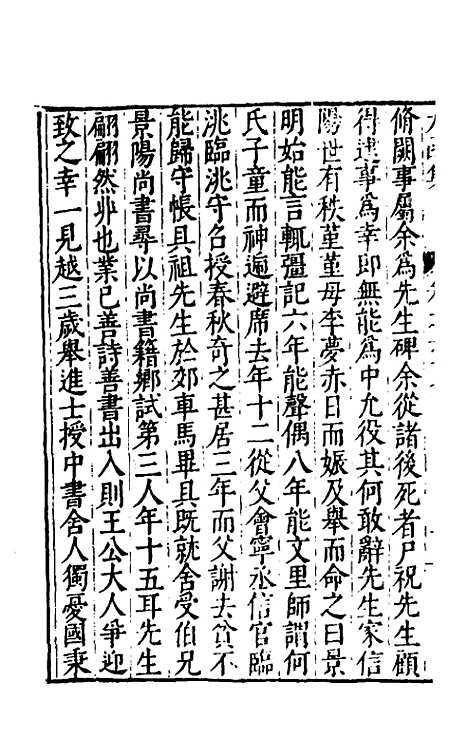 脩闕事屬余爲先生碑余從諸後死者尸祝先生顧
得逮事爲幸即無能爲中允役其何敢辭先生家信
陽世有秩菫菫母李夢赤日而娠及舉而命之曰景
明始能言輒彊記六年能聲偶八年能文里師謂何
氏子童而神遍避席去年十二從父會寧丞信官臨
洮臨洮守名授春秋奇之甚居三年而父謝去貧不
能歸守帳具祖先生於郊車馬畢具既就舍受伯兄
景陽尚書尋以尚書籍鄉試第三人年十五耳先生
翩翩然丱也業已善詩善書出入則王公大人爭迎
致之幸一見越三歲舉進士授中書舍人獨憂國秉